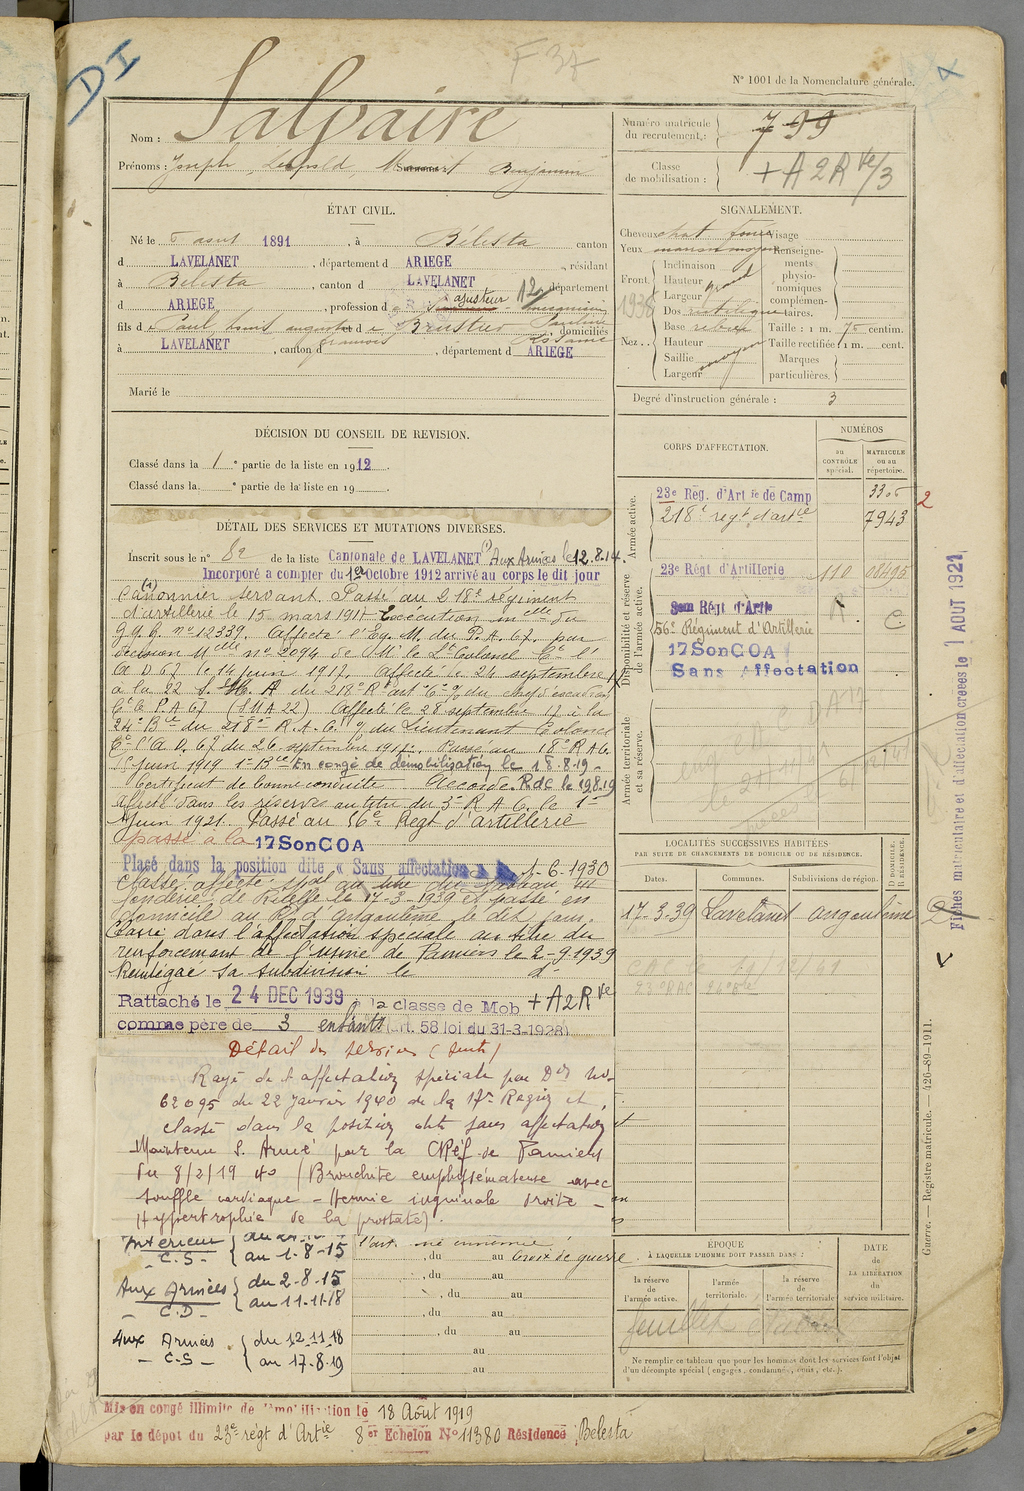 DI
F 37
N° 1001 de la Nomenclature générale.
Nom : Salvaire
Prénoms : Joseph, Léopold, Benjamin
Numéro matricule du recrutement : 799
Classe de mobilisation : + A2R Vte/3
ÉTAT CIVIL.
Né le 5 août 1891, à Bélesta canton
d LAVELANET, département d ARIEGE, résidant
à Bélesta, canton d LAVELANET département
d ARIEGE, profession d ajusteur
fils d e Paul, et d e Brustier Pauline domiciliés
à LAVELANET, canton d, département d ARIEGE
Marié le
SIGNALEMENT.
Cheveux chat foncé Visage
Yeux marron moyen Renseignements physionomiques complémentaires.
Front Inclinaison
Hauteur grand
Largeur
1938
Nez Dos rectiligne
Base
Hauteur
Saillie moyen
Largeur
Taille : 1 m. 70 centim.
Taille rectifiée : 1 m. cent.
Marques particulières.
Degré d'instruction générale : 3
DÉCISION DU CONSEIL DE REVISION.
Classé dans la 1e partie de la liste en 1912
Classé dans la e partie de la liste en 19
DÉTAIL DES SERVICES ET MUTATIONS DIVERSES.
Inscrit sous le n° 82 de la liste Cantonale de LAVELANET (1) Aux Armées le 12.8.14.
Incorporé a compter du 1er Octobre 1912 arrivé au corps le dit jour
Canonnier servant. Passé au 218e régiment
d'artillerie le 15 mars 1917 Exécution du
G.Q.G. n° 12339. Affecté P.A. 67. par
décision n° 2094 de Mr le Lt Colonel Ct l'
A D 67 le 14 juin 1917. Affecté le 24 septembre 17
à la 22 S. M. A du 218e R art du chef d'escadron
Ct P.A 67 (S.M.A 22) Affecté le 28 septembre 17 à la
24e Bie du 218e R.A.C. du Lieutenant Colonel
Ct l'A.D. 67 du 26 septembre 1917. Passé au 18e R A C
juin 1919 1e Bie En congé de démobilisation le 18-8-19-
Certificat de bonne conduite Accordé. RdC le 19819
affecté dans les réserves au titre du 3e R A C. le 1er
Juin 1921. Passé au 56e Regt d'artillerie
passé à la 17SonCOA
Placé dans la position dite « Sans affectation » 1-6-1930
Classé affecté spal au titre du
fonderie de Ruelle le 17-3-1939 et passé en
domicile au Rt d'angoulême le dit jour.
Classé dans l'affectation spéciale au titre du
renforcement de l'usine de Pamiers le 2-9-1939
Réintégré sa subdivision le d°
Rattaché le 24 DEC 1939 à la classe de Mob + A2R Vte
comme père de 3 enfants (art. 58 loi du 31-3-1928)
Détail des services (suite)
Rayé de l'affectation spéciale par Don No
62095 du 22 Janvier 1940 de la 17e Région et
classé dans la position dite sans affectation
Maintenu S. Armé par la CRéf de Pamiers
du 8/2/1940 (Bronchite emphysémateuse avec
souffle cardiaque - Hernie inguinale droite -
Hypertrophie de la prostate).
Intérieur
C.S- au 1-8-15
Croix de guerre
Aux Armées du 2-8-15
C.D- au 11-11-18
Aux Armées du 12.11.18
- C.S - au 17-8-19
, du au
, du au
, du au
, du au
au
au
CORPS D'AFFECTATION.
NUMÉROS
AU CONTRÔLE spécial.
MATRICULE ou au répertoire.
Armée active.
23e Rég. d'Artie de Camp 3305 2
218e regt d'artie 7943
Disponibilité et réserve de l'armée active.
23e Régt d'Artillerie 110 08495
3em Régt d'Artie R. C.
56e Régiment d'Artillerie
17SonCOA
Sans Affectation
Armée territoriale et sa réserve.
LOCALITÉS SUCCESSIVES HABITÉES
PAR SUITE DE CHANGEMENTS DE DOMICILE OU DE RÉSIDENCE.
Dates. Communes. Subdivisions de région. D DOMICILE. R RÉSIDENCE.
17-3-39 Lavelanet angoulême D
ÉPOQUE
À LAQUELLE L'HOMME DOIT PASSER DANS :
la réserve de l'armée active.
l'armée territoriale.
la réserve de l'armée territoriale.
DATE DE LA LIBÉRATION du service militaire.
feuillet
Ne remplir ce tableau que pour les hommes dont les services font l'objet
d'un décompte spécial (engagés, condamnés, omis, etc.).
Fiches matriculaire et d'affectation créées le 1 AOUT 1921
Guerre. — Registre matricule. — 426-89-1911.
Mis en congé illimité de démobilisation le 18 Août 1919
par le dépot du 23e régt d'Artie 8er Echelon No 11380 Résidence Bélesta